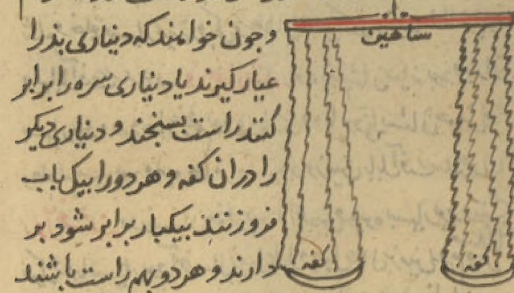 شاهین
و چون خواهند که دیناری بد را
عیار کیرند یا دیناری سره را برابر
کنند راست بسنجند و دیناری دیکر
را دران کفه و هر دو را بیک باب
فروزنند بیکبار برابر شود بر
دارند و هر دو بهم راست باشند
کفه
کفه